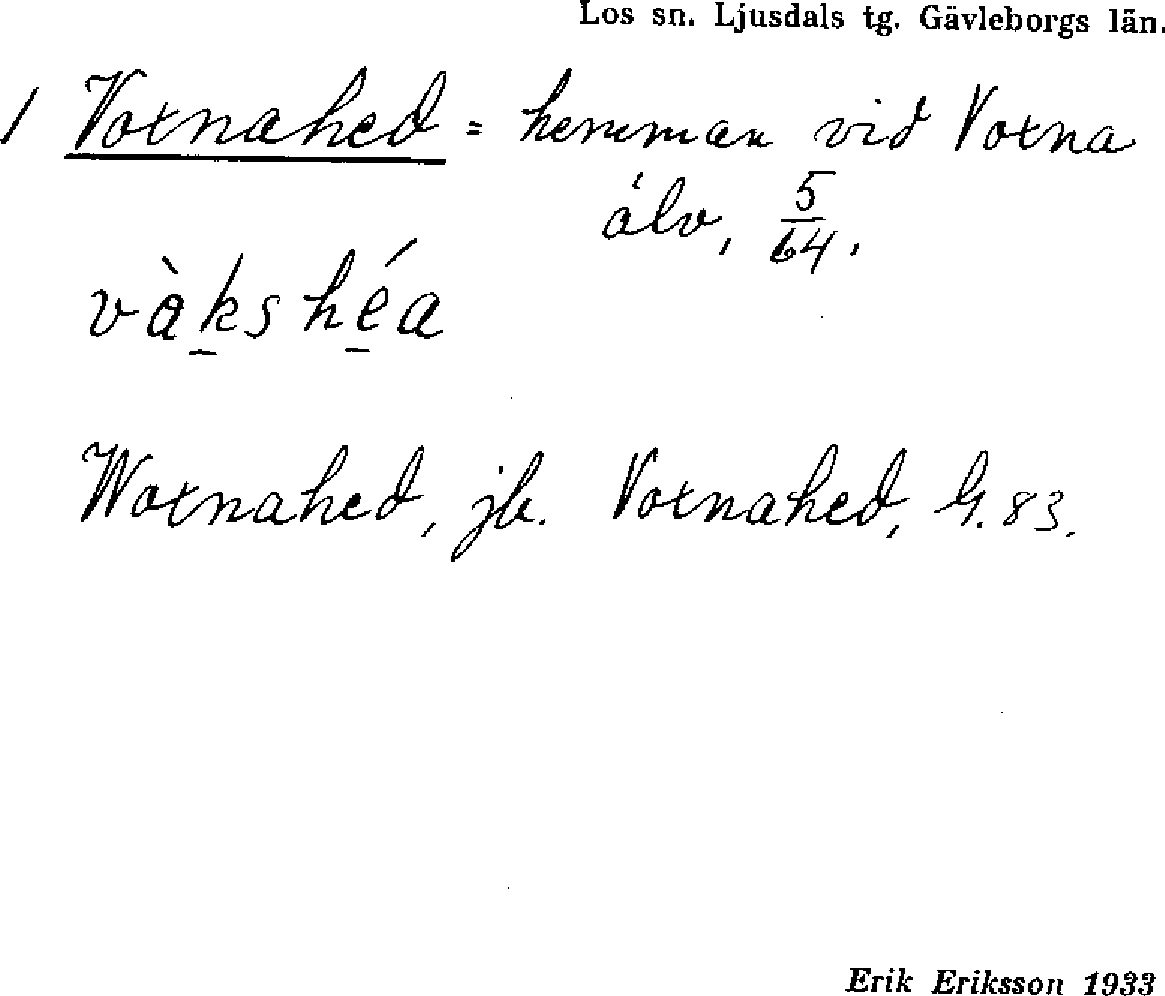 Los sn. Ljusdals tg. Gävleborgs län.
1 Voxnahed = hemman vid Voxna
älv, 5/64.
vàks héa
Woxnahed, jb. Voxnahed, G. 83.
Erik Eriksson 1933